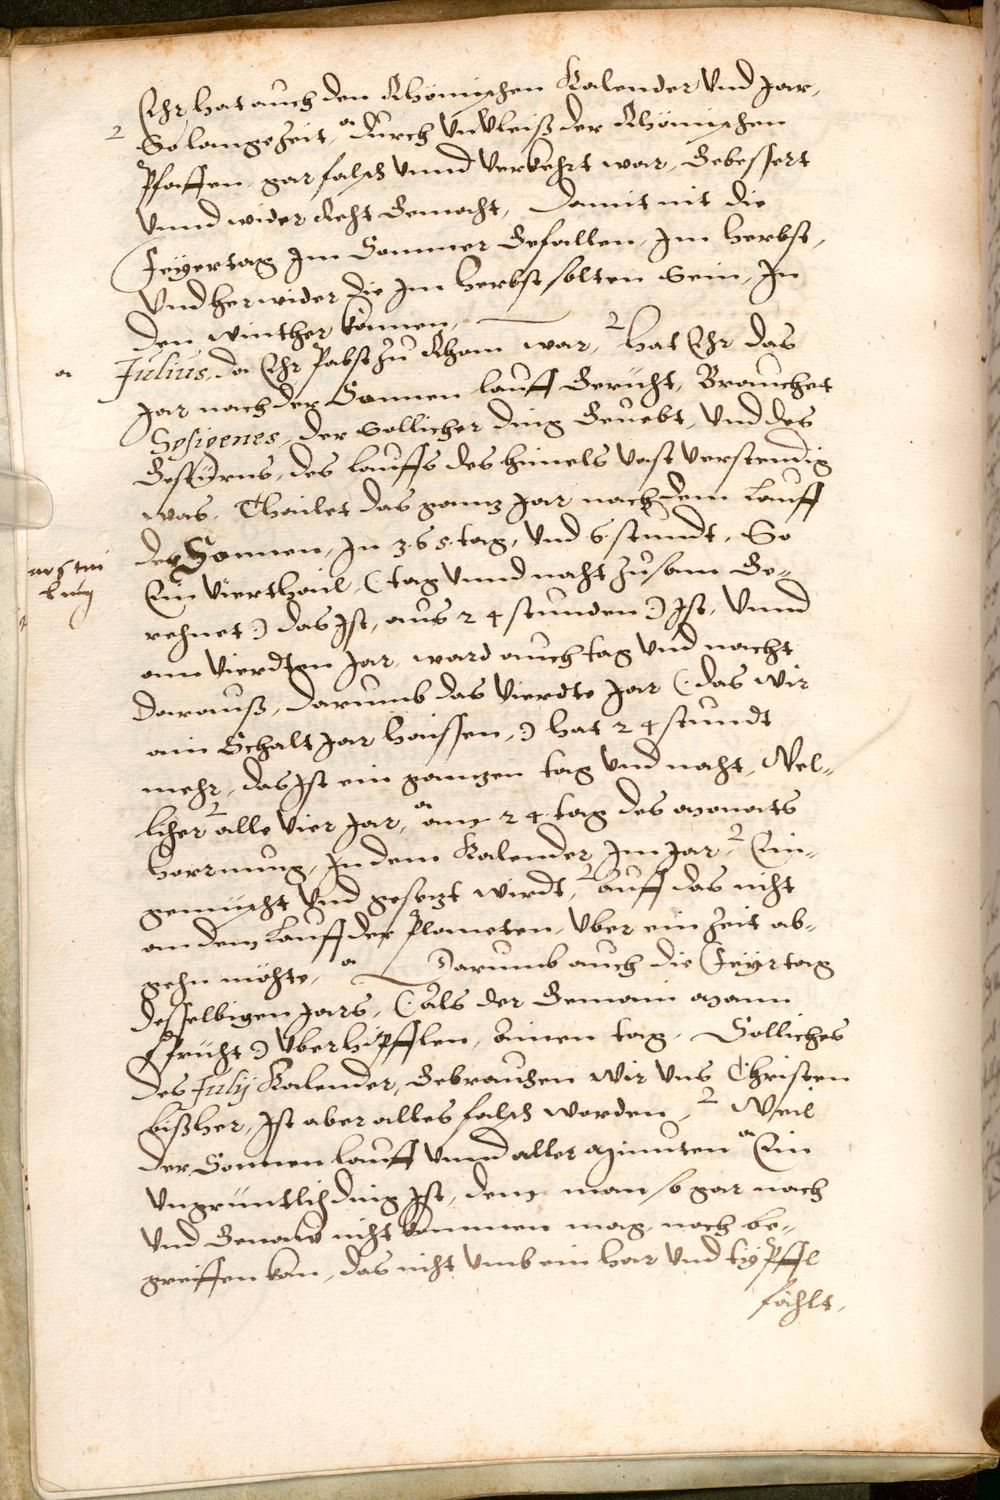 Ehr hat auch den Rhömischen Kalender Vnd Jar,
2 So lange Zeit, a durch Vnvleiß der Rhömischen
Pfaffen, gar falsch Vnnd Verkehrt war, Gebessert
Vnnd wider Recht Gemacht, Damit nit die
Feyertag Jm Sommer Gefallen, Jm Herbst,
Vnd herwider die Jm Herbst solten Sein, Jn
den winther kömen,
a Julius, da Ehr Pabst Zu Rhom war, 2 hat Ehr das
Jar nach der Sonnen lauff Gericht, Brauchet
Sosigenes, der Sollicher ding Geuebt, Vnd des
Gestirns, des lauffs des himels Vast Verstendig
was, Thailet das gantz Jar nach dem Lauff
der Sonnen, Jn 365 tag, Vnd 6 stundt, So
Ein Vierthail, (: tag Vnnd nacht Zusam Ge-
rehnet :) das Jst, aus 24 stunden :) Jst, Vnnd
am Vierdten Jar, ward auch tag Vnd nacht
darauß, darumb das Vierdte Jar (: das wir
ain Schalt Jar haissen, :) hat 24 stundt
mehr, das Jst ein gantzen tag Vnd nacht, Wel-
licher 2 alle Vier Jar, a am 24 tag des Monats
hornung, Jn dem Kalender, Jm Jar, 2 Ein-
gemischt Vnd gesetzt wirdt, 2 auff das nicht
an dem Lauff der Planeten, Vber ein Zeit ab-
gehn möchte, a Darumb auch die Feyrtag
desselbigen Jars, (: als der Gemain Mann
spricht :) Vberhipfflen, ainen tag, Solliches
des Julij Kalender, Gebrauchen wir Vns Christen
bißher, Jst aber alles falsch worden, 2 Weil
der Sonnen lauff Vnnd aller Minuten a Ein
Vngrüntlich ding Jst, dem man so gar nach
Vnd Genaw nicht kommen mag, noch be-
greiffen kan, das nicht Vmb ein har Vnd tipffl
fählt,